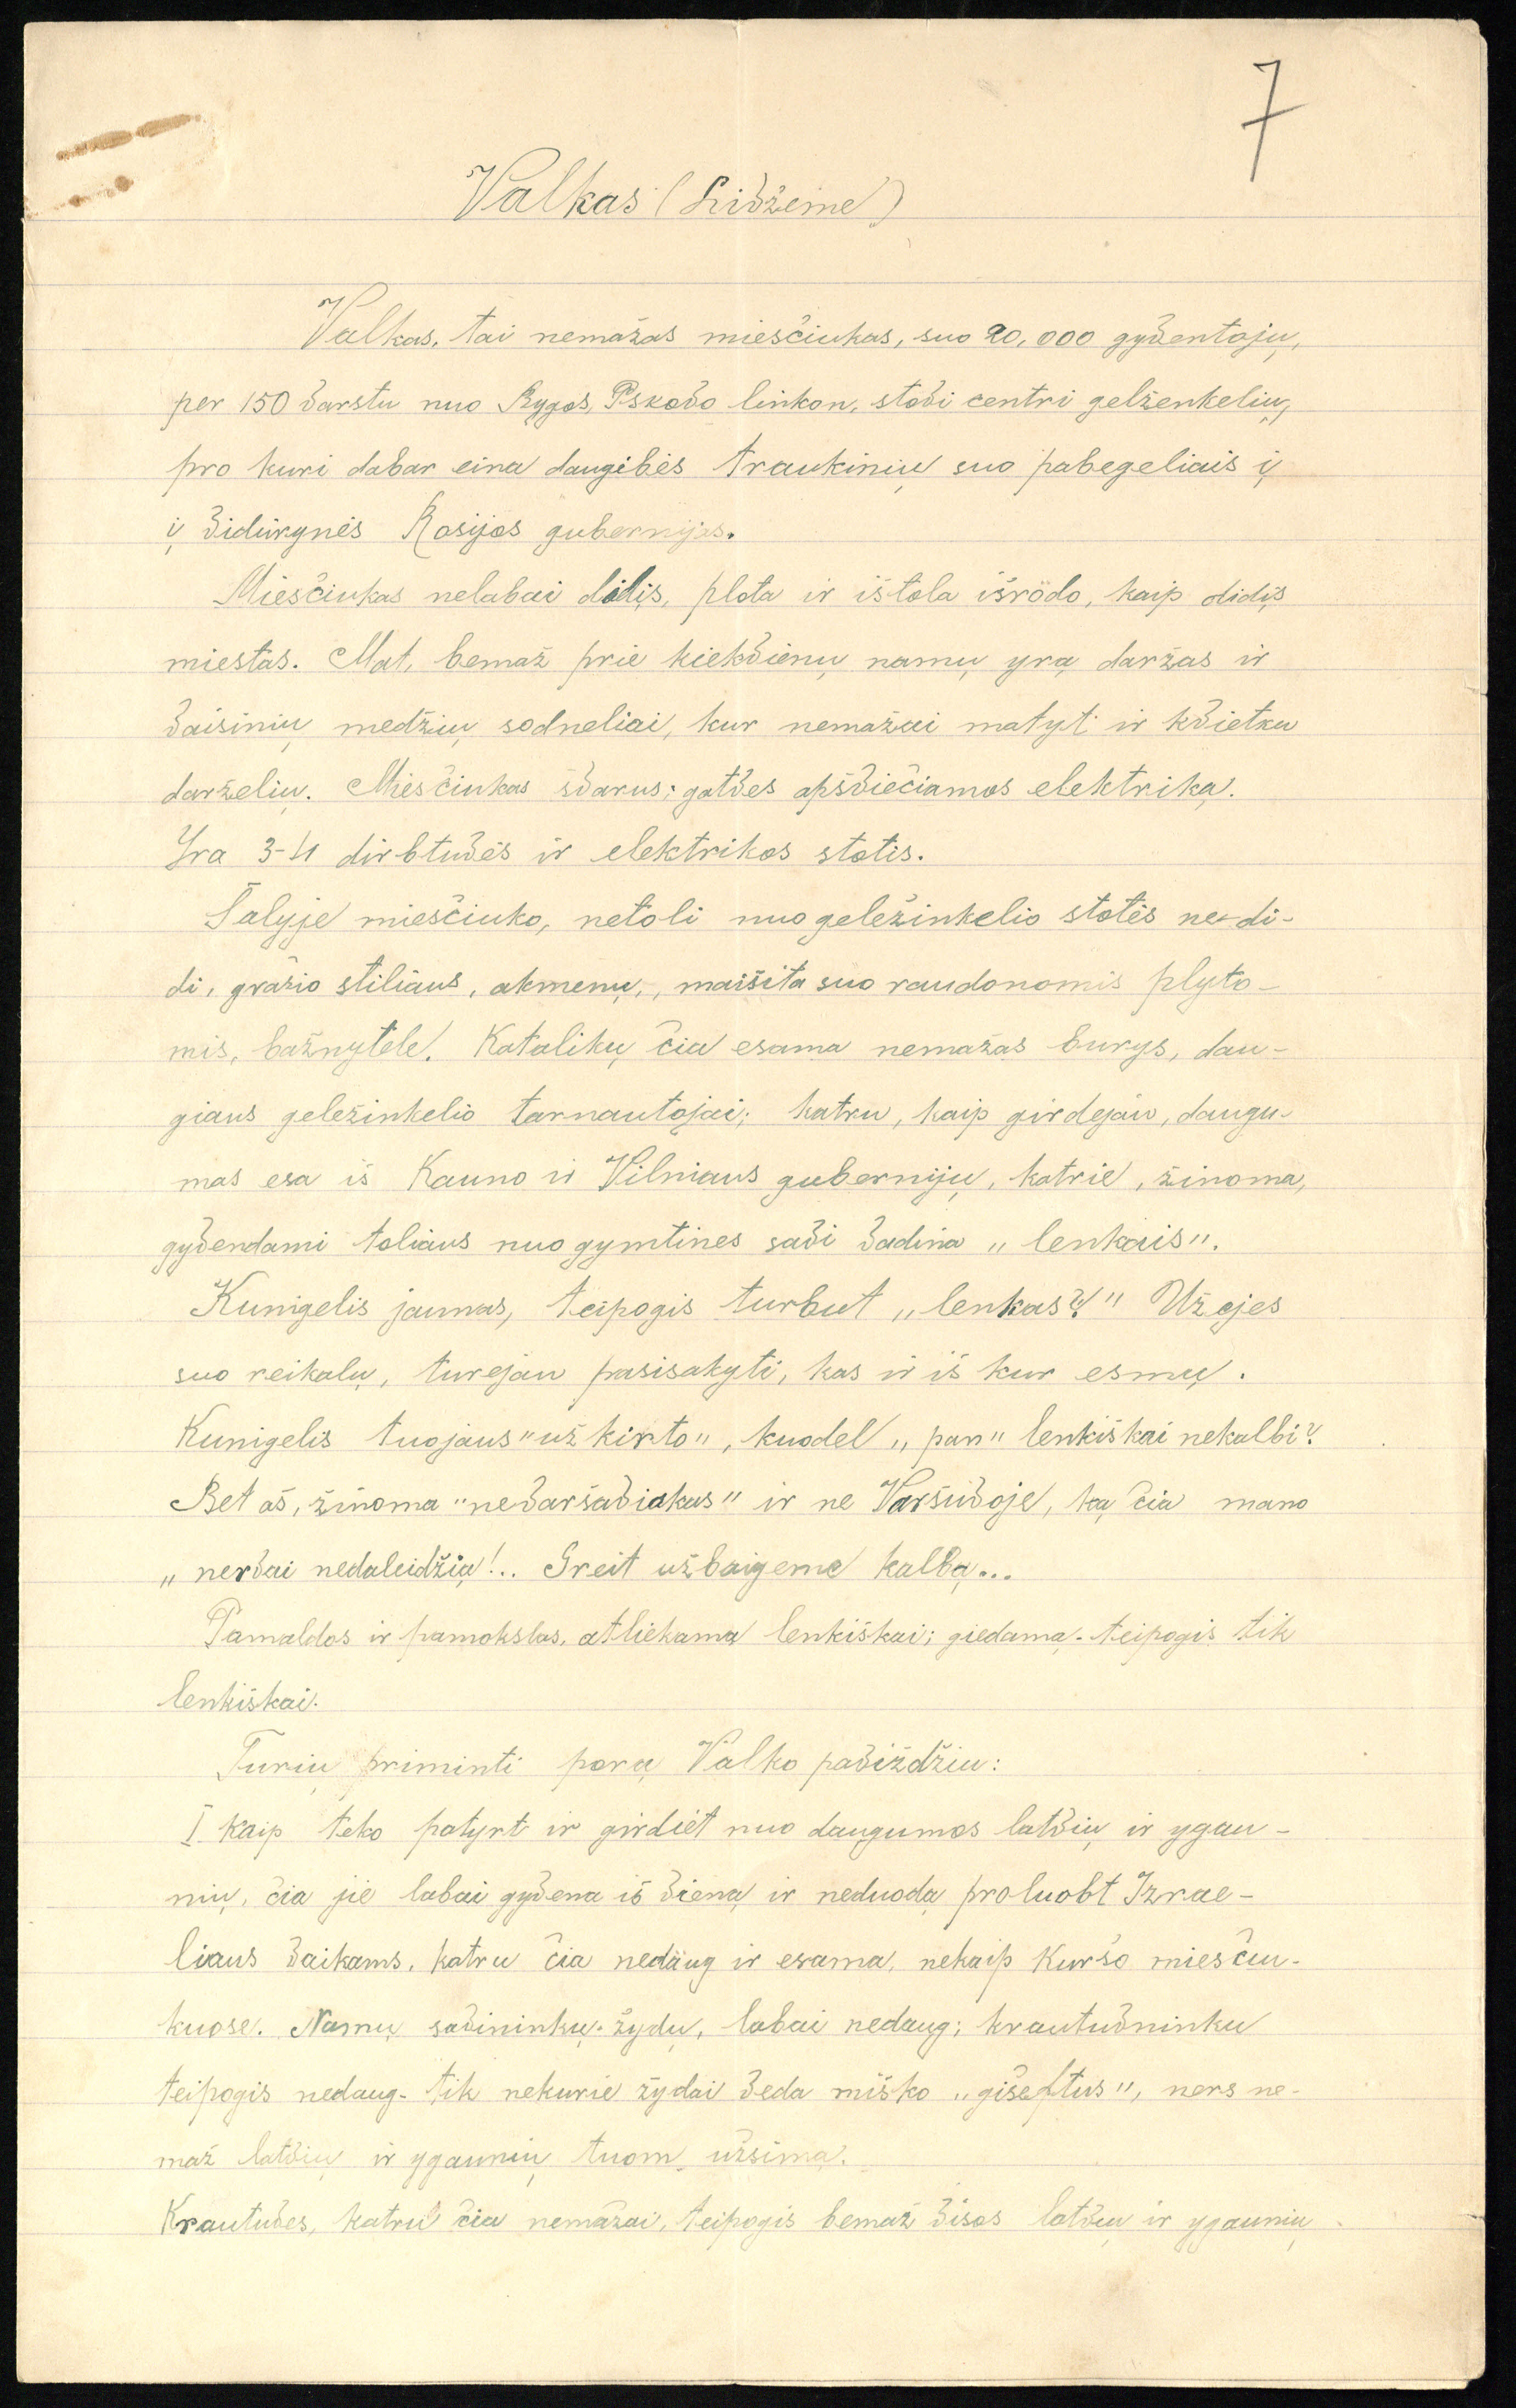 7
Valkas (Lividžeme)
Valkas, tai nemažas miesčiukas, suo 20,000 gyventojų,
per 150 varstu nuo Rygos, Pskovo linkon, stovi centri gelženkelių,
pro kuri dabar eina daugibės traukinių suo pabegeliais į
į vidurynės Rosijos gubernijas.
Miesčiukas nelabai didįs, plota ir ištola išrodo, kaip didįs
miestas. Mat, bemaž prie kiekvienų namų yrą daržas ir
vaisinių medžių sodneliai, kur nemažai matyt ir kvietku
darželių. Miesčiukas švarus; gatves apšviečiamos elektriką.
Yra 3-4 dirbtuvės ir elektrikos stotis.
Šalyje miesčiuko, netoli nuo geležinkelio stotės nedi-
di, gražio stiliaus, akmenų, maišita suo raudonomis plyto-
mis, bažnytele. Katalikų čia esama nemažas burys, dau-
giaus geležinkelio tarnautojai; katru, kaip girdejau, daugu-
mas esa iš Kauno ir Vilniaus gubernijų, katrie, žinoma,
gyvendami toliaus nuo gymtines savi vadina „lenkais".
Kunigelis jaunas, teipogis turbut „lenkas?!" Užejes
suo reikalų, turejau pasisakyti, kas ir iš kur esmų.
Kunigelis tuojaus "užkirto", kuodel „pan" lenkiškai nekalbi?
Bet aš, žinoma "nevaršaviakas" ir ne Varšuvoje, ką čia mano
„nervai nedaleidžią!.. Greit užbaigeme kalbą...
Pamaldos ir pamokslas, atliekamą lenkiškai; giedamą- teipogis tik
lenkiškai.
Turių priminti porą Valko paviždžiu:
I. Kaip teko patyrt ir girdiet nuo daugumos latvių ir ygau-
nių, čia jie labai gyvena iš vieną ir neduodą proluobt Izrae-
liaus vaikams, katru čia nedaug ir esama, nekaip Kuršo miesčiu-
kuose. Namų savininkų-žydų, labai nedaug; krautuvninku
teipogis nedaug- tik nekurie žydai veda miško „gišeftus", ners ne-
maž latvių ir ygaunių tuom užsimą.
Krautuves, katru čia nemažai, teipogis bemaž visos latvių ir ygaunių